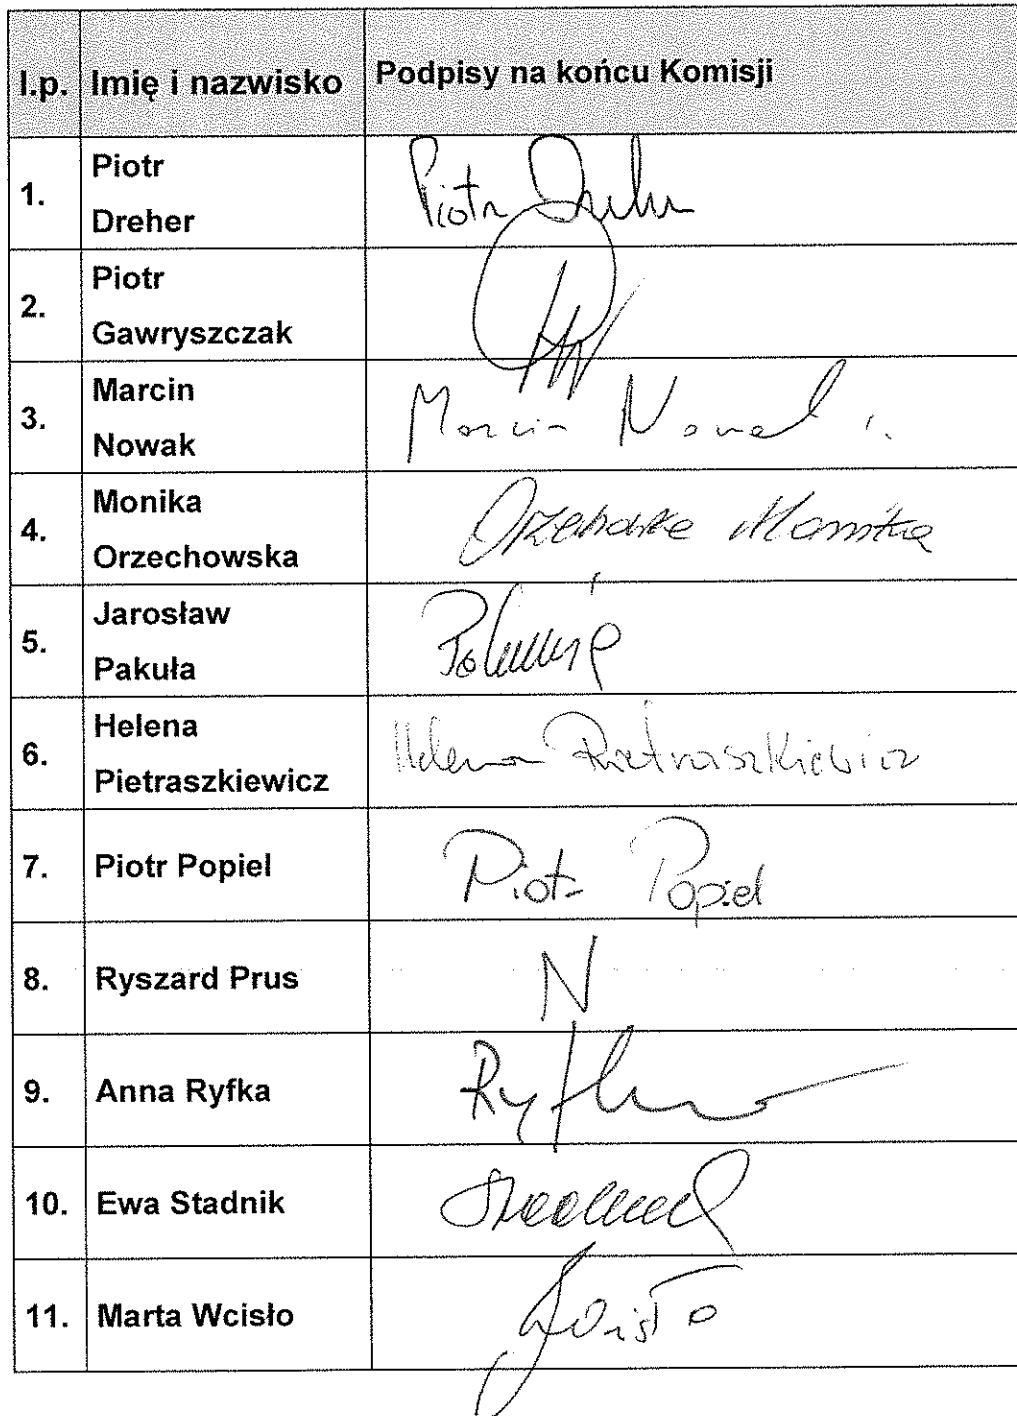 l.p. Imię i nazwisko Podpisy na końcu Komisji
1. Piotr Dreher Piotr Dreher
2. Piotr Gawryszczak
3. Marcin Nowak Marcin Nowak
4. Monika Orzechowska Orzechowska Monika
5. Jarosław Pakuła
6. Helena Pietraszkiewicz Helena Pietraszkiewicz
7. Piotr Popiel Piotr Popiel
8. Ryszard Prus N
9. Anna Ryfka Ryfka
10. Ewa Stadnik
11. Marta Wcisło Wcisło